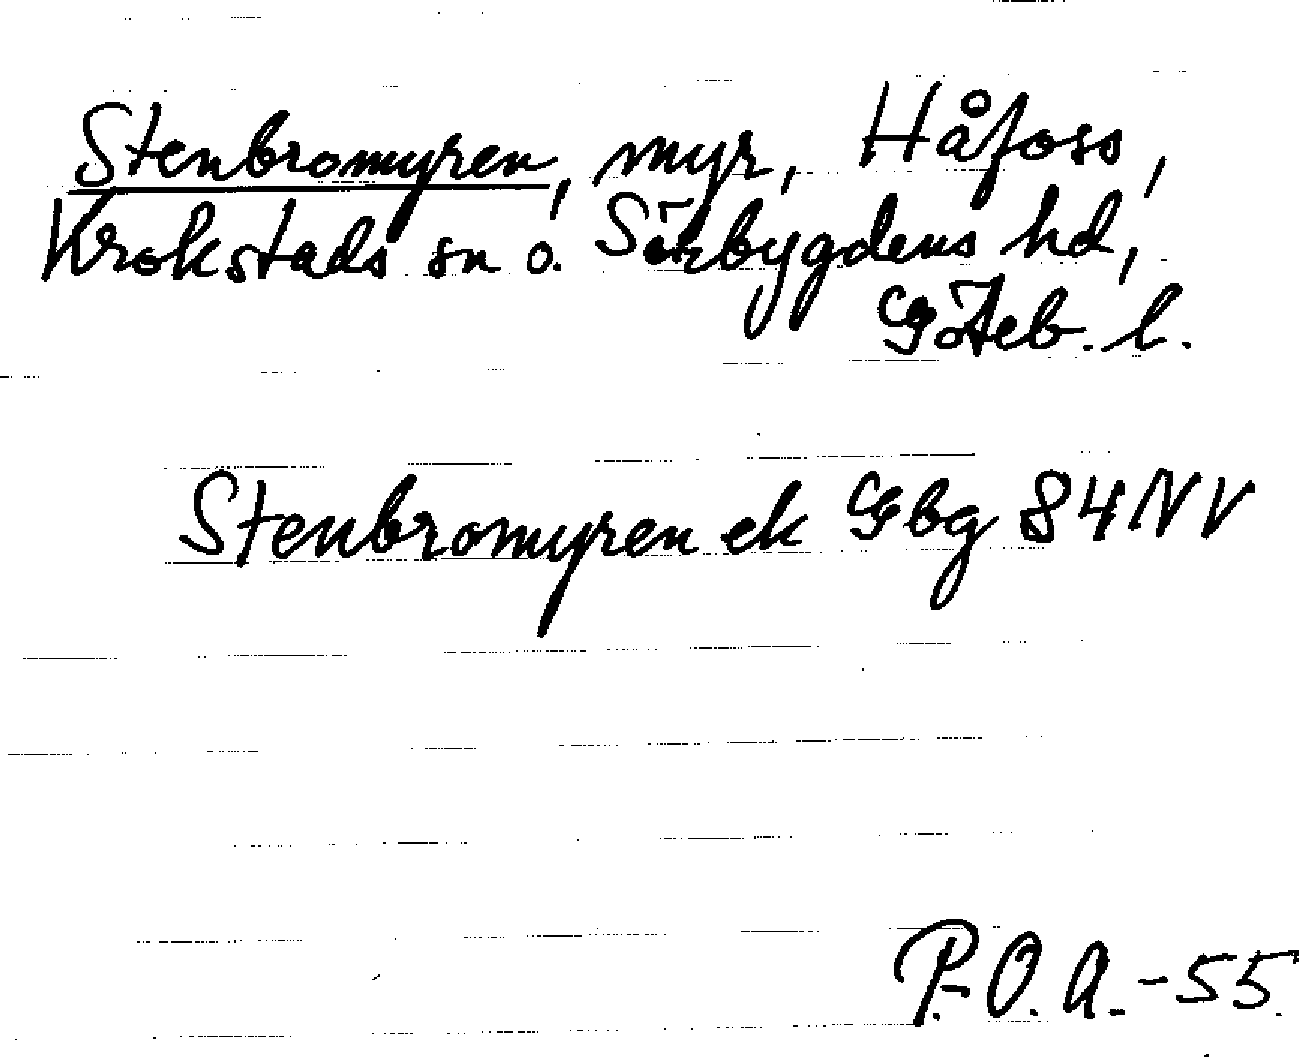 Stenbromyren, myr, Håfoss,
Krokstads sn o. Sörbygdens hd,
Göteb. l.
Stenbromyren ek Gbg 84 NV
P.O.A.-55.